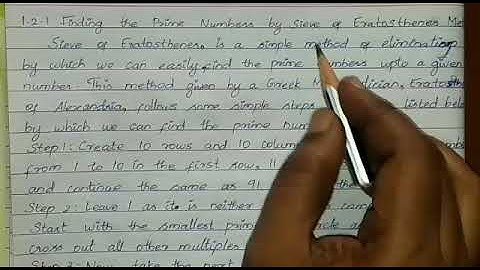 1.2.1 Finding the Prime Numbers by Sieve of Eratosthenes Met
Sieve of Eratosthenes is a simple method of elimination
by which we can easily find the prime numbers upto a given
number. This method given by a Greek
of Alexandria, follows some simple steps listed belo
by which we can find the prime num
Step 1: Create 10 rows and 10 colum
from 1 to 10 in the first row, 11
and continue the same as 91
Step 2: Leave 1 as it is neither
Start with the smallest prim
cross out all other multiples
Step 3: Now, take the next